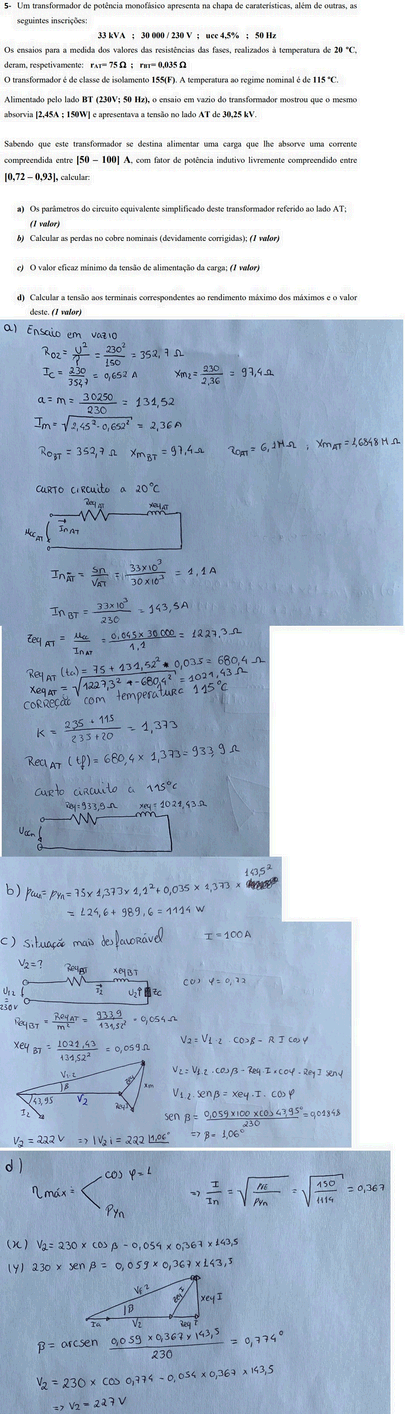 5- Um transformador de potência monofásico apresenta na chapa de caraterísticas, além de outras, as
seguintes inscrições:
33 kVA ; 30 000 / 230 V ; ucc 4,5% ; 50 Hz
Os ensaios para a medida dos valores das resistências das fases, realizados à temperatura de 20 ºC,
deram, respetivamente: rAT= 75 Ω ; rBT= 0,035 Ω
O transformador é de classe de isolamento 155(F). A temperatura ao regime nominal é de 115 ºC.
Alimentado pelo lado BT (230V; 50 Hz), o ensaio em vazio do transformador mostrou que o mesmo
absorvia [2,45A ; 150W] e apresentava a tensão no lado AT de 30,25 kV.
Sabendo que este transformador se destina alimentar uma carga que lhe absorve uma corrente
compreendida entre [50 – 100] A, com fator de potência indutivo livremente compreendido entre
[0,72 – 0,93], calcular:
a) Os parâmetros do circuito equivalente simplificado deste transformador referido ao lado AT;
(1 valor)
b) Calcular as perdas no cobre nominais (devidamente corrigidas); (1 valor)
c) O valor eficaz mínimo da tensão de alimentação da carga; (1 valor)
d) Calcular a tensão aos terminais correspondentes ao rendimento máximo dos máximos e o valor
deste. (1 valor)
a) Ensaio em vazio
Ro2 = U²/P = 230²/150 = 352,7 Ω
Ic = 230/352,7 = 0,652 A Xm2 = 230/2,36 = 97,4 Ω
a = m = 30250/230 = 131,52
Im = √(2,45² - 0,652²) = 2,36 A
RoBT = 352,7 Ω XmBT = 97,4 Ω RoAT = 6,1 M Ω ; XmAT = 1,6848 M Ω
curto circuito a 20°C
Req AT Xeq AT
UccAT In AT
InAT = Sn/VAT = 33x10³/30x10³ = 1,1 A
In BT = 33x10³/230 = 143,5 A
Zeq AT = Ucc/InAT = 0,045 x 30 000/1,1 = 1227,3 Ω
Req AT (ta) = 75 + 131,52² * 0,035 = 680,4 Ω
Xeq AT = √(1227,3² - 680,4²) = 1021,43 Ω
correção com temperatura 115°C
K = 235 + 115/235 + 20 = 1,373
Req AT (tf) = 680,4 x 1,373 = 933,9 Ω
curto circuito a 115°c
Req=933,9 Ω Xeq= 1021,43 Ω
Uccn
b) pcun = Pyn = 75 x 1,373 x 1,1² + 0,035 x 1,373 x 143,5²
= 124,6 + 989,6 = 1114 W
c) situação mais desfavorável I = 100A
V2 = ?
ReqBT XeqBT cos φ = 0,72
U12 = 230V I2 U2 Zc
Req BT = ReqAT/m² = 933,9/131,52² = 0,054 Ω
Xeq BT = 1021,43/131,52² = 0,059 Ω
V2 = V12 · cosβ - R I cos φ
V2 = V12 · cosβ - Req.I x cos φ - Req I sen φ
V12 . senβ = xeq . I . cos φ
sen β = 0,059 x 100 x cos 43,95°/230 = 0,01848
=> β = 1,06°
V12 β 43,95 V2 I2 ReqI Xm
V2 = 222 V => |V2| = 222 |1,06°
d)
η máx = cos φ = 1
Pyn
=> I/In = √(PFe/Pyn) = √(150/1114) = 0,367
(x) V2 = 230 x cos β - 0,054 x 0,367 x 143,5
(y) 230 x sen β = 0,059 x 0,367 x 143,5
V12 β Xeq I
I2 V2 Req I
β = arcsen 0,059 x 0,367 x 143,5/230 = 0,774°
V2 = 230 x cos 0,774 - 0,054 x 0,367 x 143,5
=> V2 = 227 V